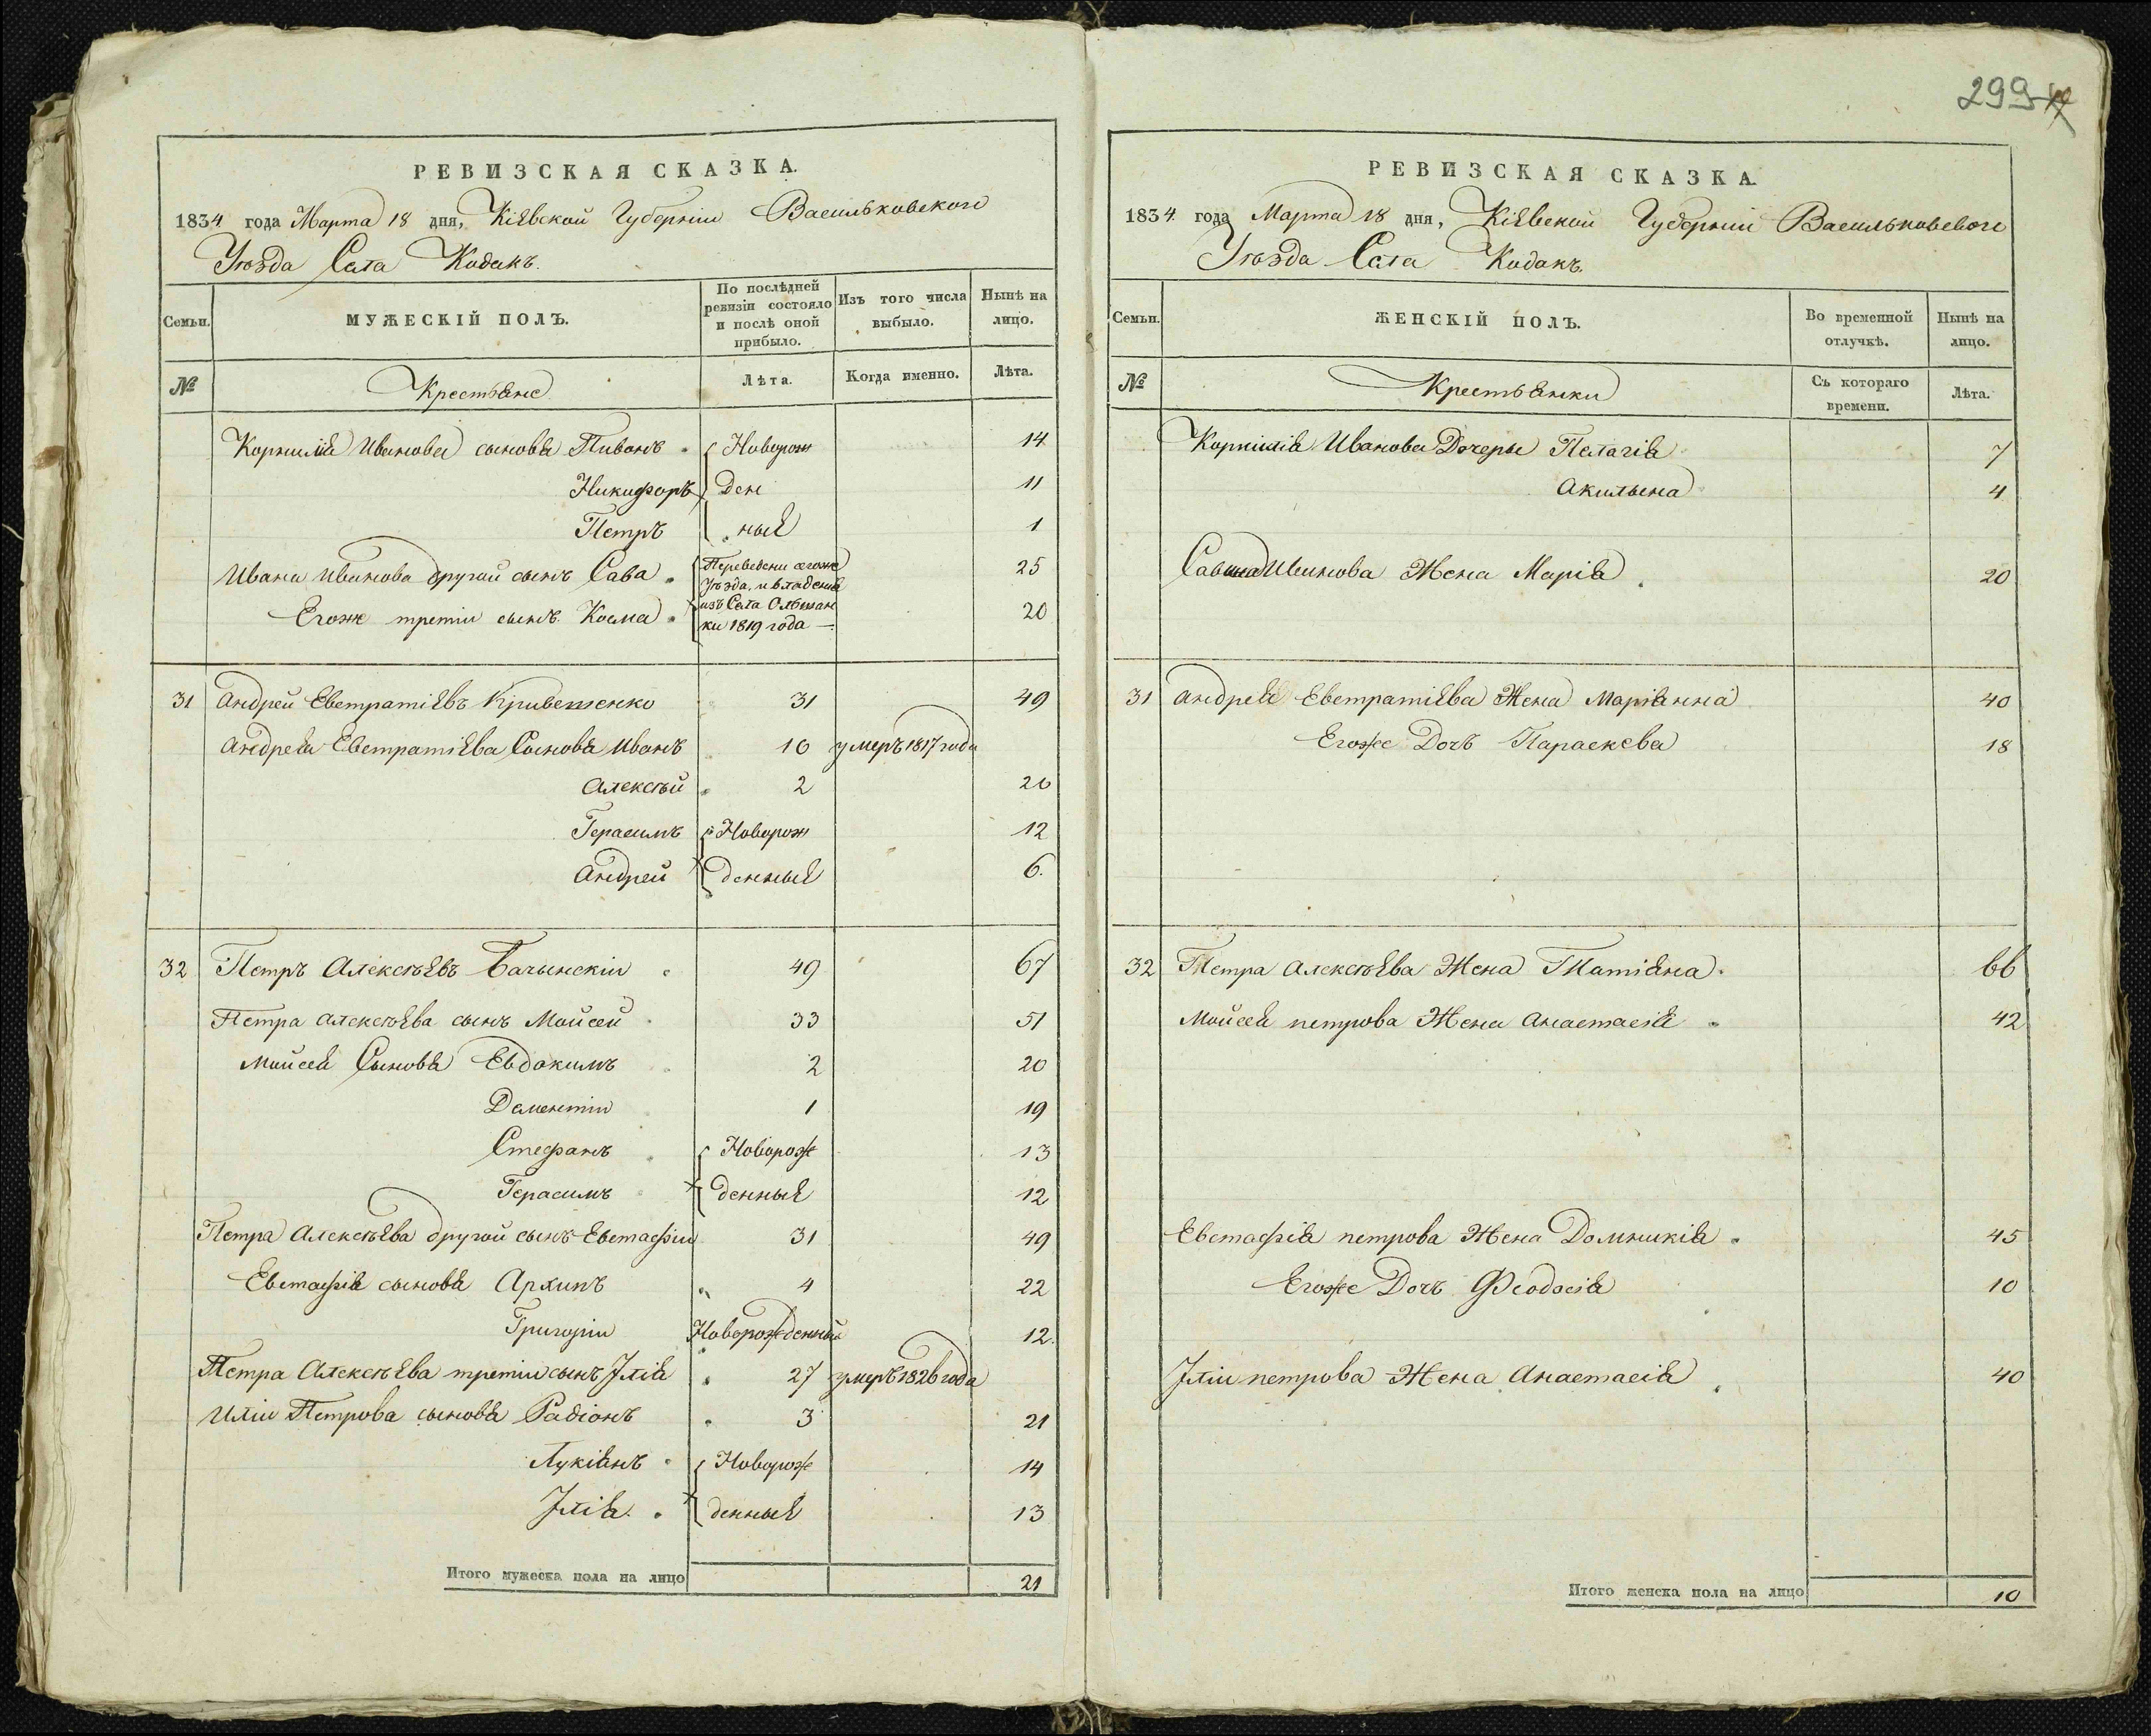 РЕВИЗСКАЯ СКАЗКА.
1834 года Марта 18 дня, Кіевской Губерніи Васильковского
Уѣзда Села Кодакъ.
Семьи.
МУЖЕСКІЙ ПОЛЪ.
По послѣдней ревизіи состояло и послѣ оной прибыло.
Изъ того числа выбыло.
Нынѣ на лицо.
№
Крестьяне
Лѣта.
Когда именно.
Лѣта.
Корнилія Иванова сыновья Пивонъ Новорож 14
Никифоръ ден 11
Петръ ные 1
Ивана Иванова другой сынъ Сава 25
Переведени сегоже
Уѣзда, и владения
изъ Села Ольшан
ки 1819 года
Егоже третіи сынъ Косма 20
31 Андрей Евстратіевъ 31 49
Андрея Евстратіева Сыновья Иванъ 10 умеръ 1817 года
Алексѣй 2 20
Герасимъ Новорож 12
Андрей денные 6.
32 Петръ Алексѣевъ Бачынскіи 49 67
Петра Алексѣева сынъ Мойсей 33 51
Мойсея Сыновья Евдокимъ 2 20
Доментіи 1 19
Стефанъ Новорож 13
Герасимъ денные 12
Петра Алексѣева другой сынъ Евстафіи 31 49
Евстафія сыновья Архипъ 4 22
Григоріи Новорожденный 12.
Петра Алексѣева третіи сынъ Ілія 27 умеръ 1826 года
Иліи Петрова сыновья Радіонъ 3 21
Лукіянъ Новорож 14
Ілія. денные 13
Итого мужеска пола на лицо 21
299
РЕВИЗСКАЯ СКАЗКА.
1834 года Марта 18 дня, Кіевской Губерніи Васильковского
Уѣзда Села Кодакъ.
Семьи.
ЖЕНСКІЙ ПОЛЪ.
Во временной отлучкѣ.
Нынѣ на лицо.
№
Крестьянки
Съ котораго времени.
Лѣта.
Корнилія Иванова Дочеры Пелагія 7
Акилына 4
Иванова Жена Марія 20
31 Андрея Евстратіева Жена Маріянна 40
Егоже Дочъ Параскева 18
32 Петра Алексѣева Жена Татіяна. 66
Мойсея петрова Жена Анастасія 42
Евстафія петрова Жена Домникія 45
Егоже Дочъ Феодосія 10
Іліи петрова Жена Анастасія 40
Итого женска пола на лицо 10